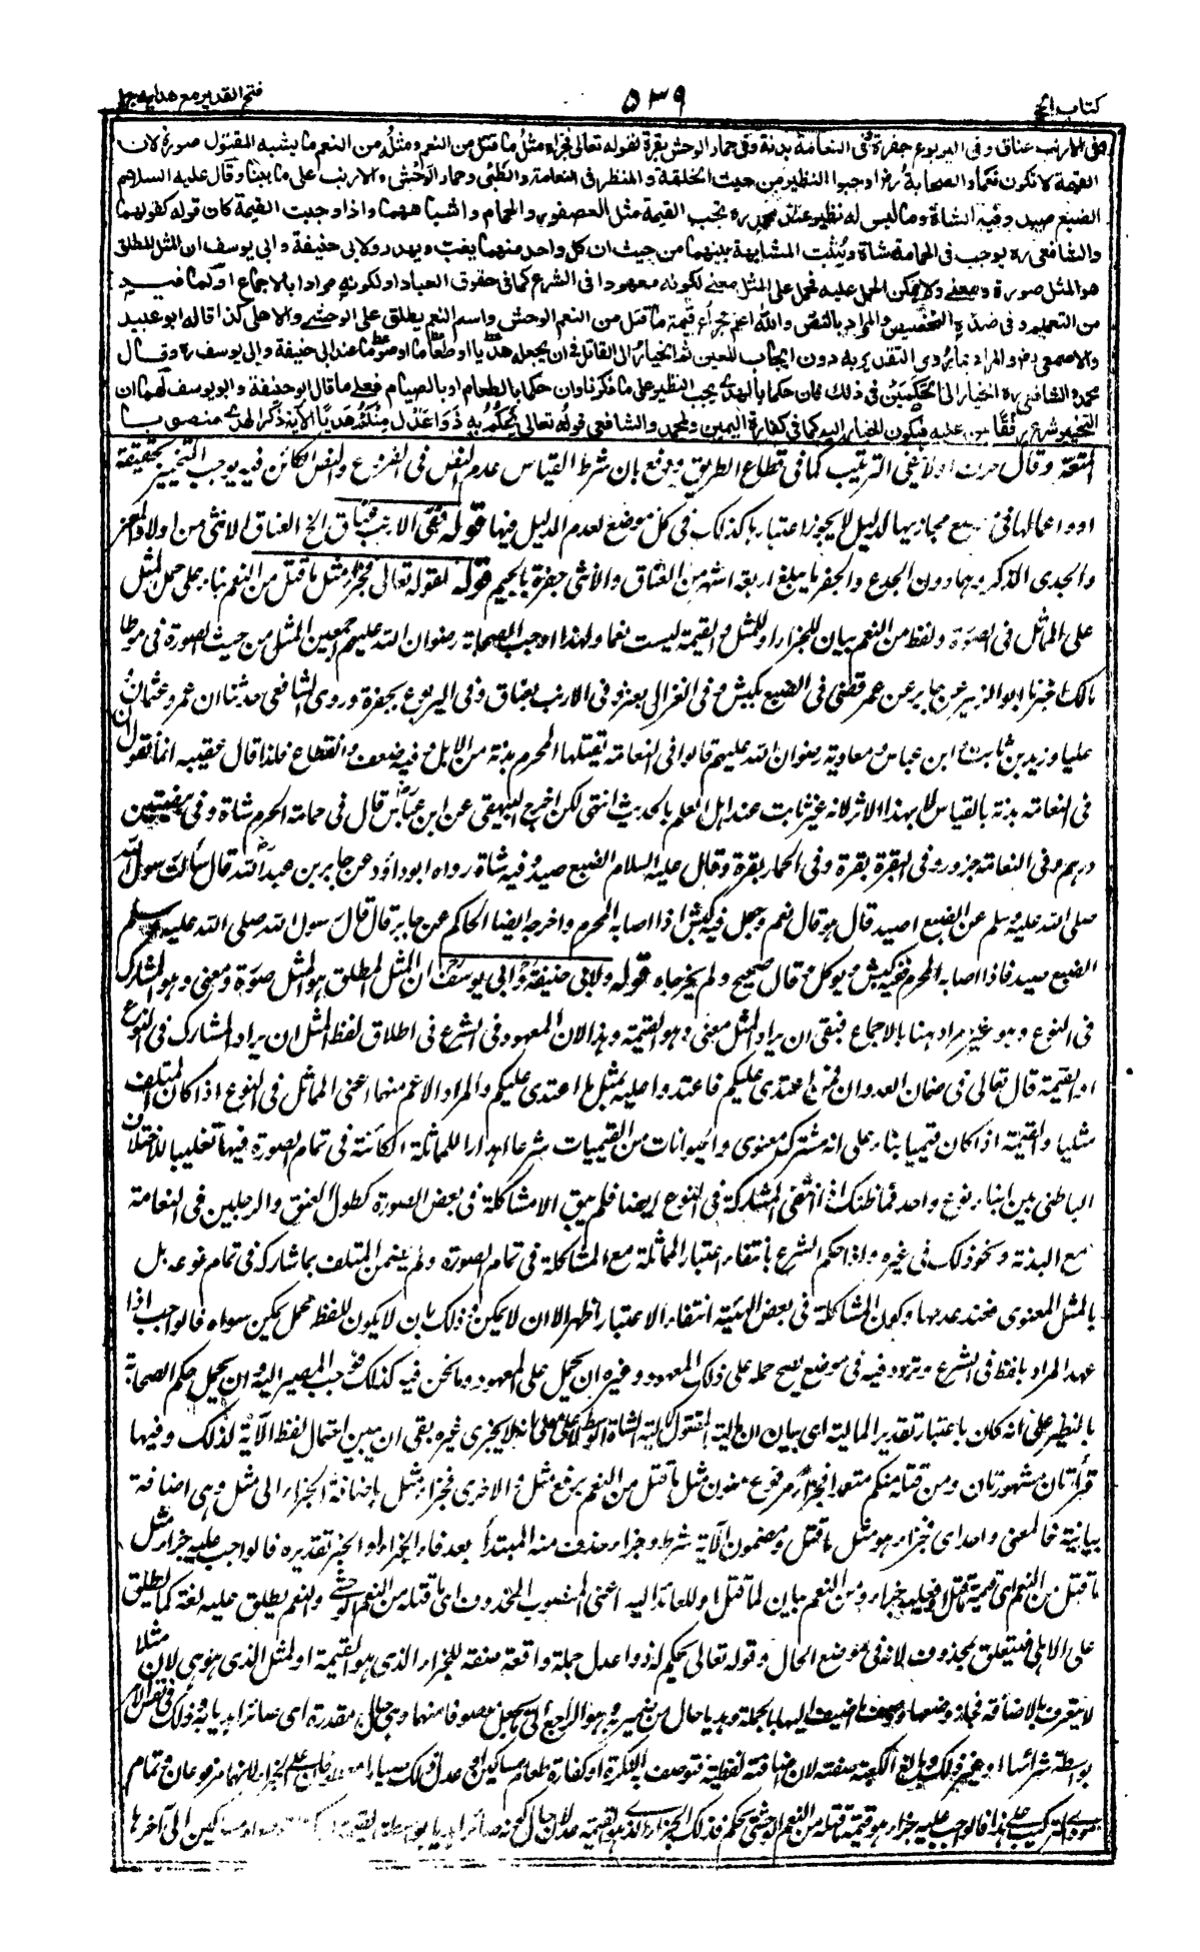 كتاب الحج
٥٣٩
فتح القدير مع هدايه جلد
وفى الارنب عناق وفى اليربوع جفرة وفى النعامة بدنة وفى حمار الوحش بقرة لقوله تعالى فجزاء مثل ما قتل من النعم ومثله من النعم ما يشبه المقتول صورة لان
القيمة لا تكون نعما والصحابة رض اوجبوا النظير من حيث الخلقة والمنظر فى النعامة والظبى وحمار الوحش والارنب على ما بينا وقال عليه السلام
الضبع صيد وفيه الشاة وما ليس له نظير عند محمد ره تجب القيمة مثل العصفور والحمام واشباههما واذا وجبت القيمة كان قوله كقولهما
والشافعى ره يوجب فى الحمامة شاة ويثبت المشابهة بينهما من حيث ان كل واحد منهما يعب ويهدر ولابى حنيفة وابى يوسف ان المثل المطلق
هو المثل صورة ومعنى ولا يمكن الحمل عليه فحمل على المثل معنى لكونه معهودا فى الشرع كما فى حقوق العباد او لكونه مرادا بالاجماع او لما فيه
من التعميم وفى ضده التخصيص والمراد بالنص والله اعلم فجزاء قيمة ما قتل من النعم الوحش واسم النعم يطلق على الوحشى والاهلى كذا قاله ابو عبيد
والاصمعى رض والمراد بما روى التقدير به دون ايجاب المعين ثم الخيار الى القاتل فى ان يجعله هديا او طعاما او صوما عند ابى حنيفة وابى يوسف ره وقال
محمد والشافعى ره الخيار الى الحكمين فى ذلك فان حكما بالهدى يجب النظير على ما ذكرنا وان حكما بالطعام او بالصيام فعلى ما قال ابو حنيفة وابو يوسف لهما ان
التخيير شرع رفقا بمن عليه فيكون الخيار اليه كما فى كفارة اليمين ولمحمد والشافعى قوله تعالى يحكم به ذوا عدل منكم هديا الآية ذكر الهدى منصوبا
المتعة وقال حرف او لا ينفى الترتيب كما فى قطاع الطريق ودفع بان شرط القياس عدم النص فى الفرع والنص الكائن فيه يوجب التخيير كحقيقة
او واعمالها فى مجازيها لدليل لا يجوز اعتباره كذلك فى كل موضع لعدم الدليل فيها قوله ففى الارنب عناق الخ العناق الانثى من اولاد المعز
والجدى الذكر وهما دون الجذع والجفر ما يبلغ اربعة اشهر من العناق والانثى جفرة بالجيم قوله لقوله تعالى فجزاء مثل ما قتل من النعم بناء على حمل المثل
على المماثل فى الصورة ولفظ من النعم بيان للجزاء او للمثل والقيمة ليست نعما ولهذا اوجب الصحابة رضوان الله عليهم اجمعين المثل من حيث الصورة فى موطا
مالك اخبرنا ابو الزبير عن جابر عن عمر قضى فى الضبع بكبش وفى الغزال بعنز وفى الارنب بعناق وفى اليربوع بجفرة وروى الشافعى حدثنا ان عمر وعثمان
عليا وزيد بن ثابت وابن عباس ومعاوية رضوان الله عليهم قالوا فى النعامة يقتلها المحرم بدنة من الابل وفيه ضعف وانقطاع فلذا قال عقيبه انما نقول ان
فى النعامة بدنة بالقياس لا بهذا الاثر لانه غير ثابت عند اهل العلم بالحديث انتهى لكن اخرج البيهقى عن ابن عباس قال فى حمامة الحرم شاة وفى بيضتين
درهم وفى النعامة جزور وفى البقرة بقرة وفى الحمار بقرة وقال عليه السلام الضبع صيد وفيه شاة رواه ابو داؤد عن جابر بن عبد الله قال سألت رسول الله
صلى الله عليه وسلم عن الضبع اصيد قال هو قال نعم وجعل فيه كبش اذا اصابه المحرم واخرجه ايضا الحاكم عن جابر قال قال رسول الله صلى الله عليه وسلم
الضبع صيد فاذا اصابه المحرم ففيه كبش ويوكل وقال صحيح ولم يخرجاه قوله ولابى حنيفة وابى يوسف ان المثل المطلق هو المثل صورة ومعنى وهو المشارك
فى النوع وهو غير مراد هنا بالاجماع فبقى ان يراد المثل معنى وهو القيمة وهذا لان المعهود فى الشرع فى اطلاق لفظ المثل ان يراد المشارك فى النوع
او القيمة قال تعالى فى ضمان العدوان فمن اعتدى عليكم فاعتدوا عليه بمثل ما اعتدى عليكم والمراد الاعم منهما اعنى المماثل فى النوع اذا كان المتلف
مثليا والقيمة اذا كان قيميا بناء على انه مشترك معنوى والحيوانات من القيميات شرعا اهدارا للمماثلة الكائنة فى تمام الصورة فيها تغليبا للاختلاف
الباطنى بين ابناء نوع واحد فما ظنك اذا انتفى المشاركة فى النوع ايضا فلم يبق الا مشاكلة فى بعض الصورة كطول العنق والرجلين فى النعامة
مع البدنة ونحو ذلك فى غيره واذا حكم الشرع بانتفاء اعتبار المماثلة مع المشاكلة فى تمام الصورة ولم يضمن المتلف بما شاركه فى تمام نوعه بل
بالمثل المعنوى فعند عدمها وكون المشاكلة فى بعض الهيئة انتفاء الاعتبار اظهر الا ان لا يمكن ذلك بان لا يكون للفظ محمل يمكن سواه فالواجب اذا
عهد المراد بلفظ فى الشرع وتردد فيه فى موضع يصح حمله على ذلك المعهود وغيره ان يحمل على المعهود وما نحن فيه كذلك فوجب المصير اليه وان يحمل حكم الصحابة
بالنظير على انه كان باعتبار تقدير المالية اى بيان ان مالية المقتول كمالية الشاة الوسط لا على معنى انه لا يجزى غيره بقى ان يبين احتمال لفظ الآية لذلك وفيها
قرأتان مشهورتان ومن قتله منكم متعمدا فجزاء مرفوع منون مثل ما قتل من النعم برفع مثل والاخرى فجزاء مثل باضافة الجزاء الى مثل وهى اضافة
بيانية فالمعنى واحد اى فجزاء هو مثل ما قتل ومضمون الآية شرط وجزاء حذف منه المبتدأ بعد فاء الجزاء او الخبر تقديره فالواجب عليه جزاء مثل
ما قتل من النعم اى قيمة ما قتل او فعليه جزاء ومن النعم بيان لما قتل او للعائد اليه اعنى المنصوب المحذوف اى ما قتله من النعم الوحشى والنعم يطلق عليه لغة كما يطلق
على الاهلى فيتعلق بمحذوف لانه فى موضع الحال وقوله تعالى يحكم به ذوا عدل جملة واقعة صفة للجزاء الذى هو القيمة او المثل الذى هو هى لان مثلا
لا يتعرف بالاضافة فجاز وصفها ووصف ما اضيف اليها بالجملة وهديا حال من ضمير به وهو الراجع الى
بواسطة شرائها او غير ذلك وبالغ الكعبة صفته لان اضافته لفظية فتوصف به النكرة او كفارة طعام مساكين او عدل ذلك صياما
التركيب على هذا فالواجب عليه جزاء هو قيمة ما قتله من النعم الوحشى يحكم